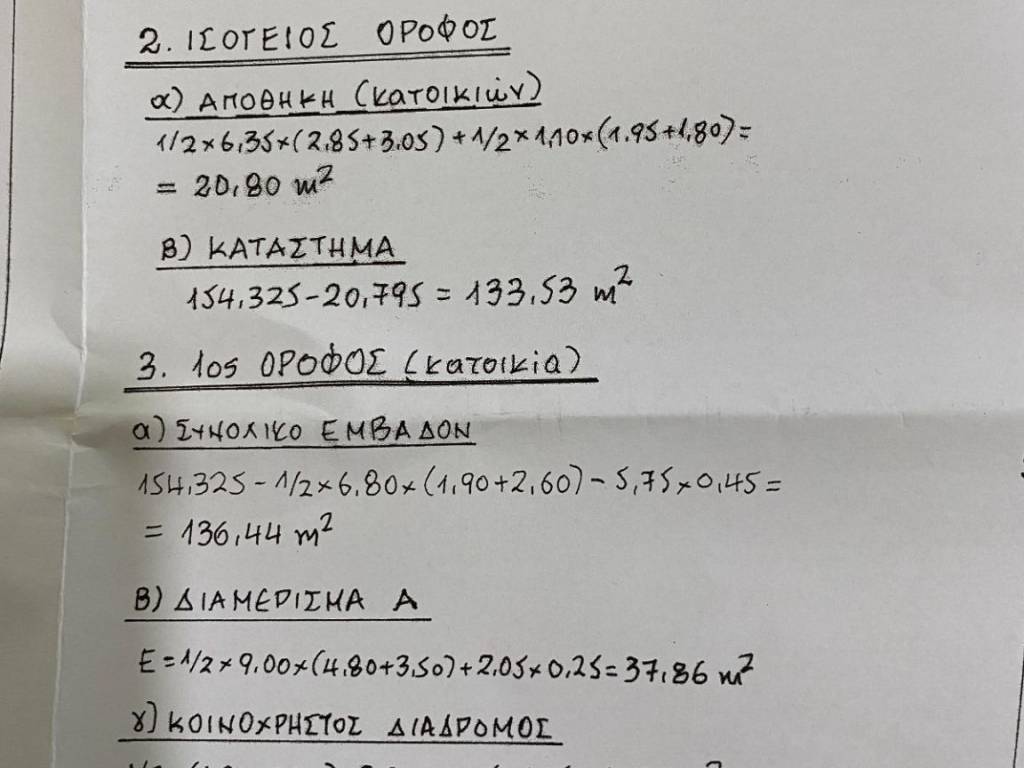 2. ΙΣΟΓΕΙΟΣ ΟΡΟΦΟΣ
α) ΑΠΟΘΗΚΗ (κατοικιών)
1/2×6,35×(2,85+3,05)+1/2×1,10×(1,95+1,80)=
= 20,80 m²
Β) ΚΑΤΑΣΤΗΜΑ
154,325-20,795 = 133,53 m²
3. 1ος ΟΡΟΦΟΣ (κατοικία)
α) ΣΥΝΟΛΙΚΟ ΕΜΒΑΔΟΝ
154,325 - 1/2×6,80×(1,90+2,60) - 5,75×0,45 =
= 136,44 m²
Β) ΔΙΑΜΕΡΙΣΜΑ Α
Ε = 1/2×9,00×(4,80+3,50)+2,05×0,25=37,86 m²
γ) ΚΟΙΝΟΧΡΗΣΤΟΣ ΔΙΑΔΡΟΜΟΣ